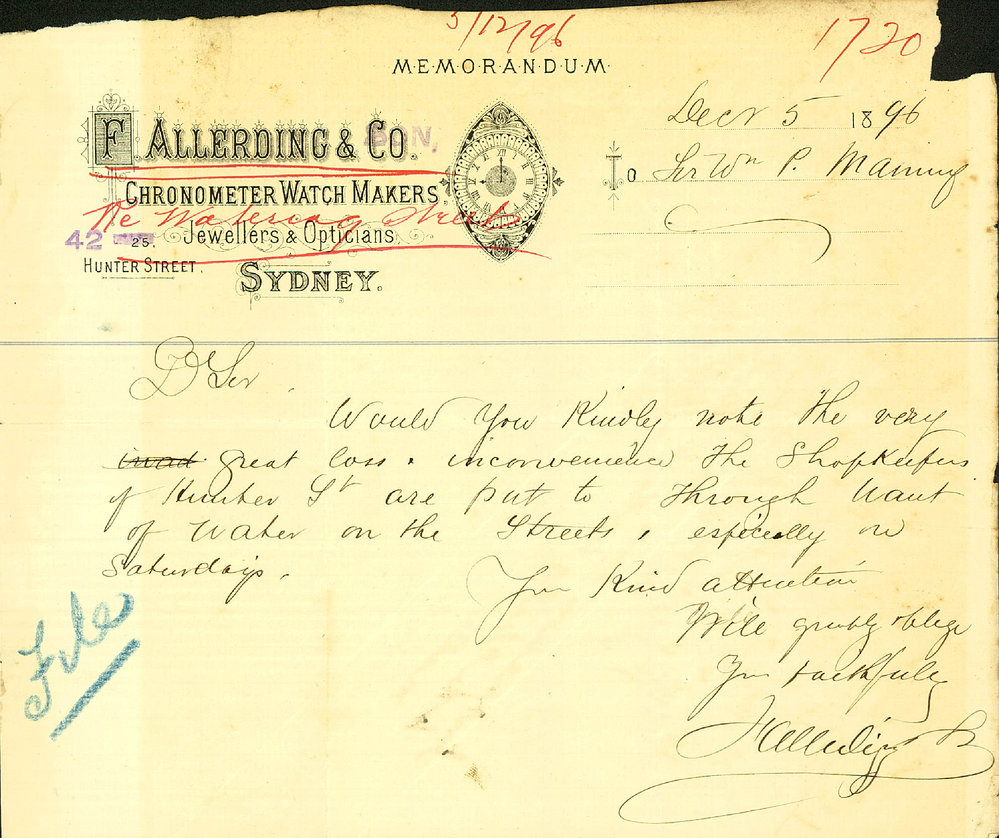 5/12/96
1720
MEMORANDUM
Decr 5 1896
F. ALLERDING & CO.
SON,
To Sir Wm P. Manning
CHRONOMETER WATCH MAKERS
Re Watering Streets
42 25. Jewellers & Opticians
HUNTER STREET.
SYDNEY.
D Sir,
Would you Kindly note the very
great loss & inconvenience the Shopkeepers
of Hunter St are put to through want
of Water on the Streets, especially on
Saturdays.
Your Kind attention
Will greatly oblige
Yrs faithfully
F Allerding
File